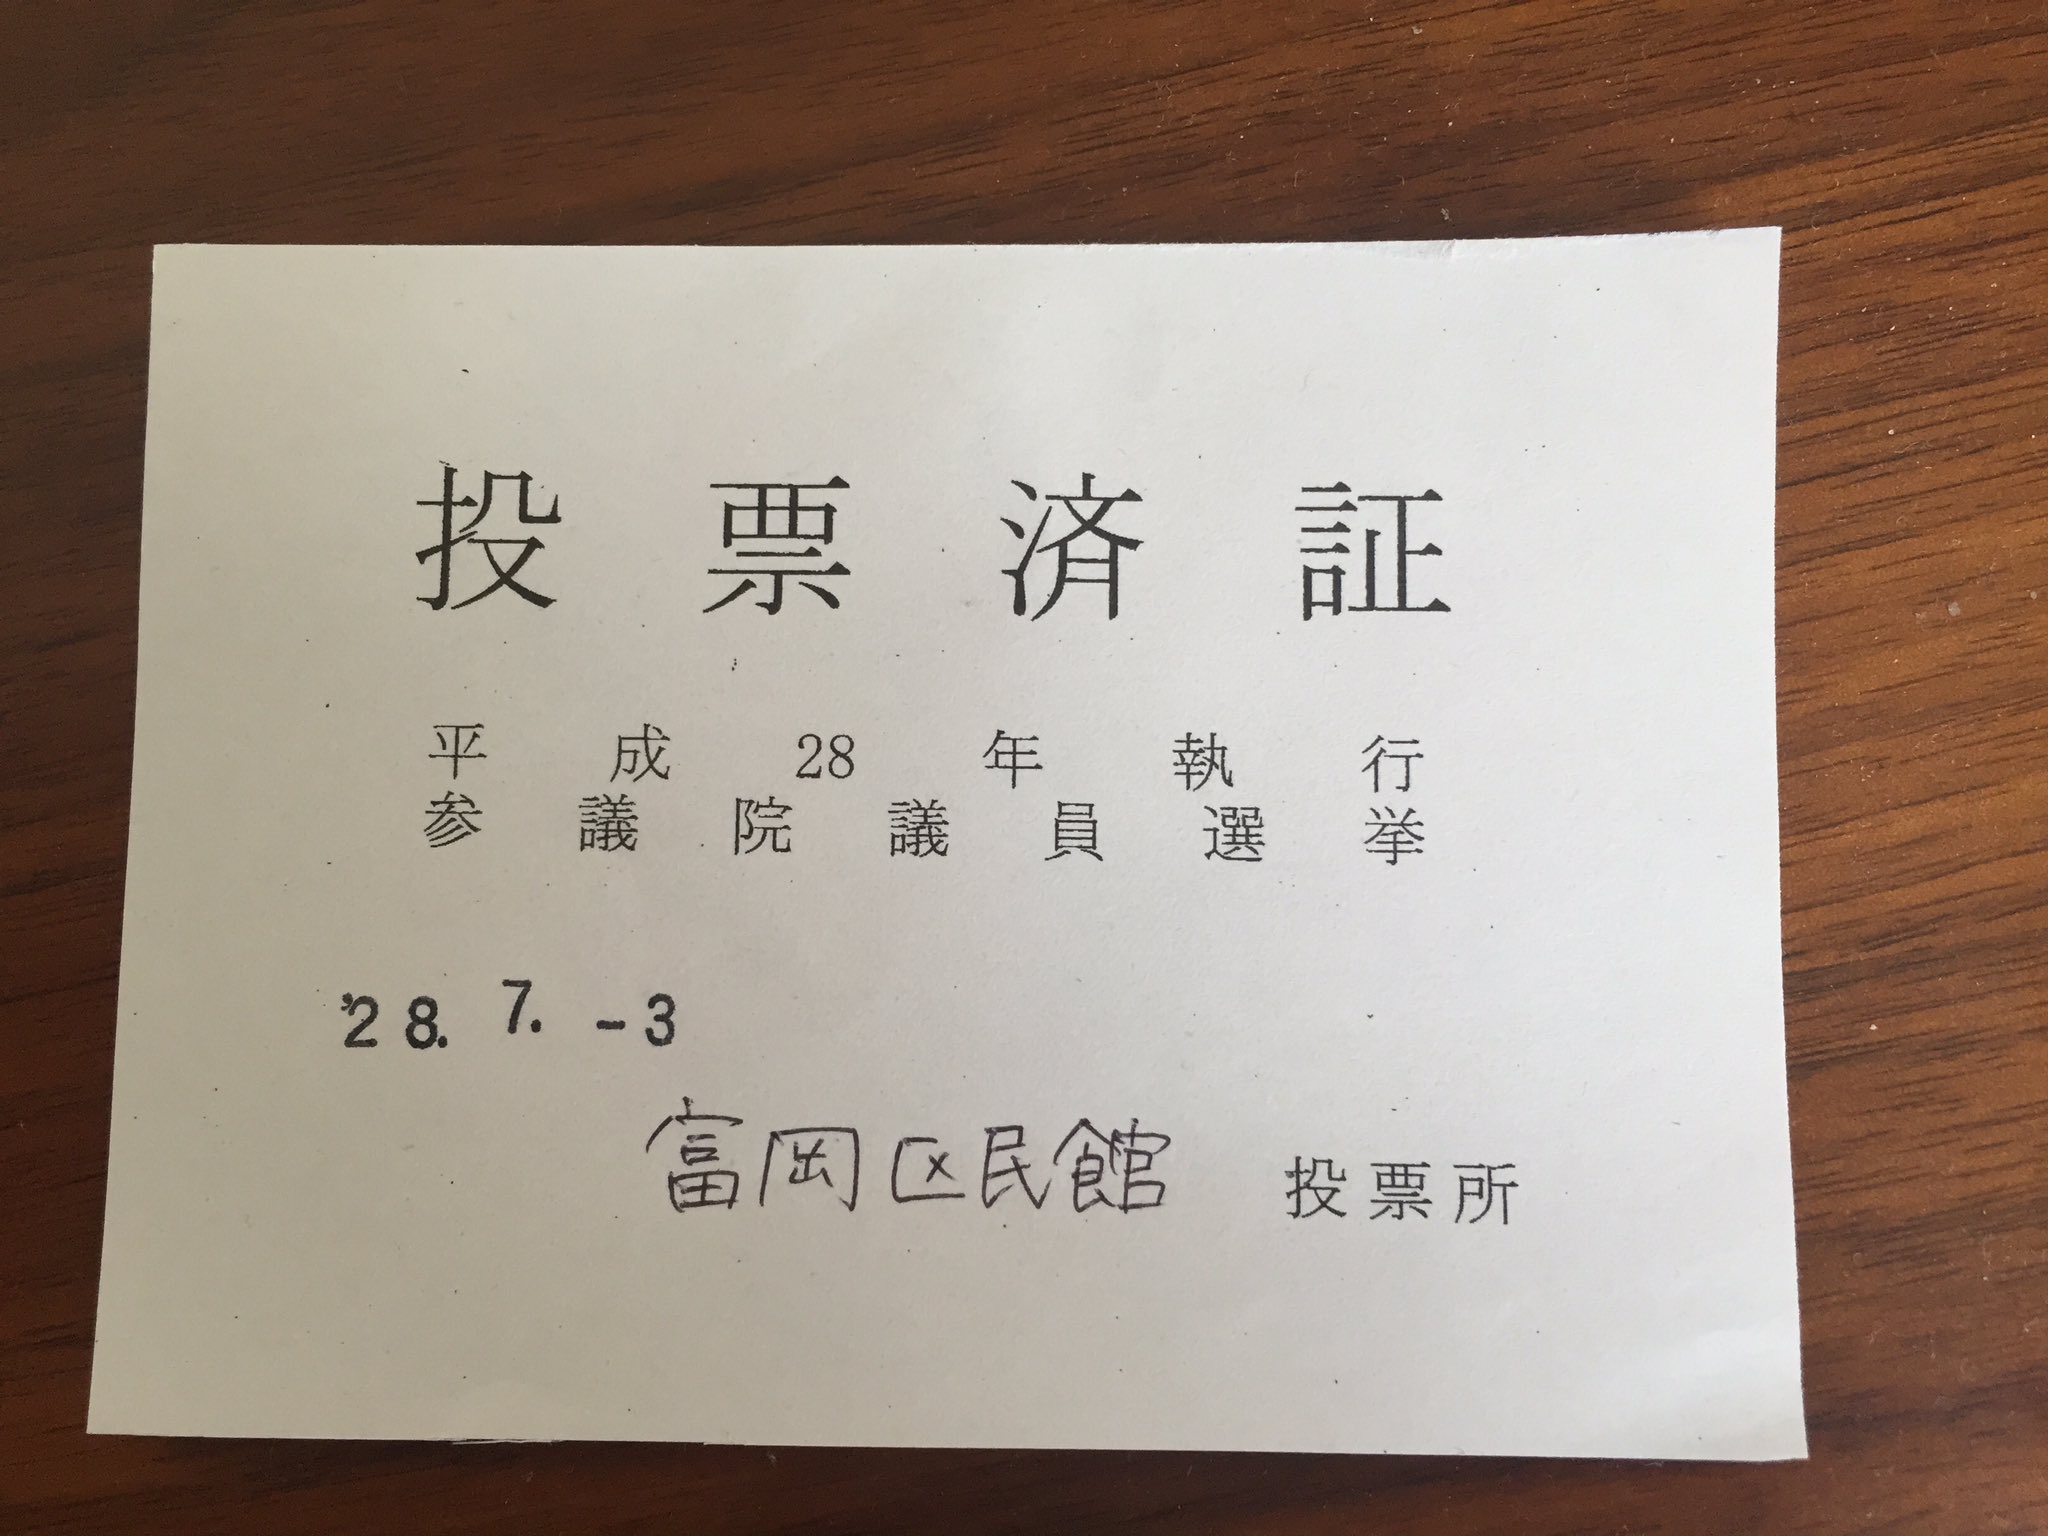 投票済証
平成28年執行
参議院議員選挙
'28.7.-3
富岡区民館 投票所